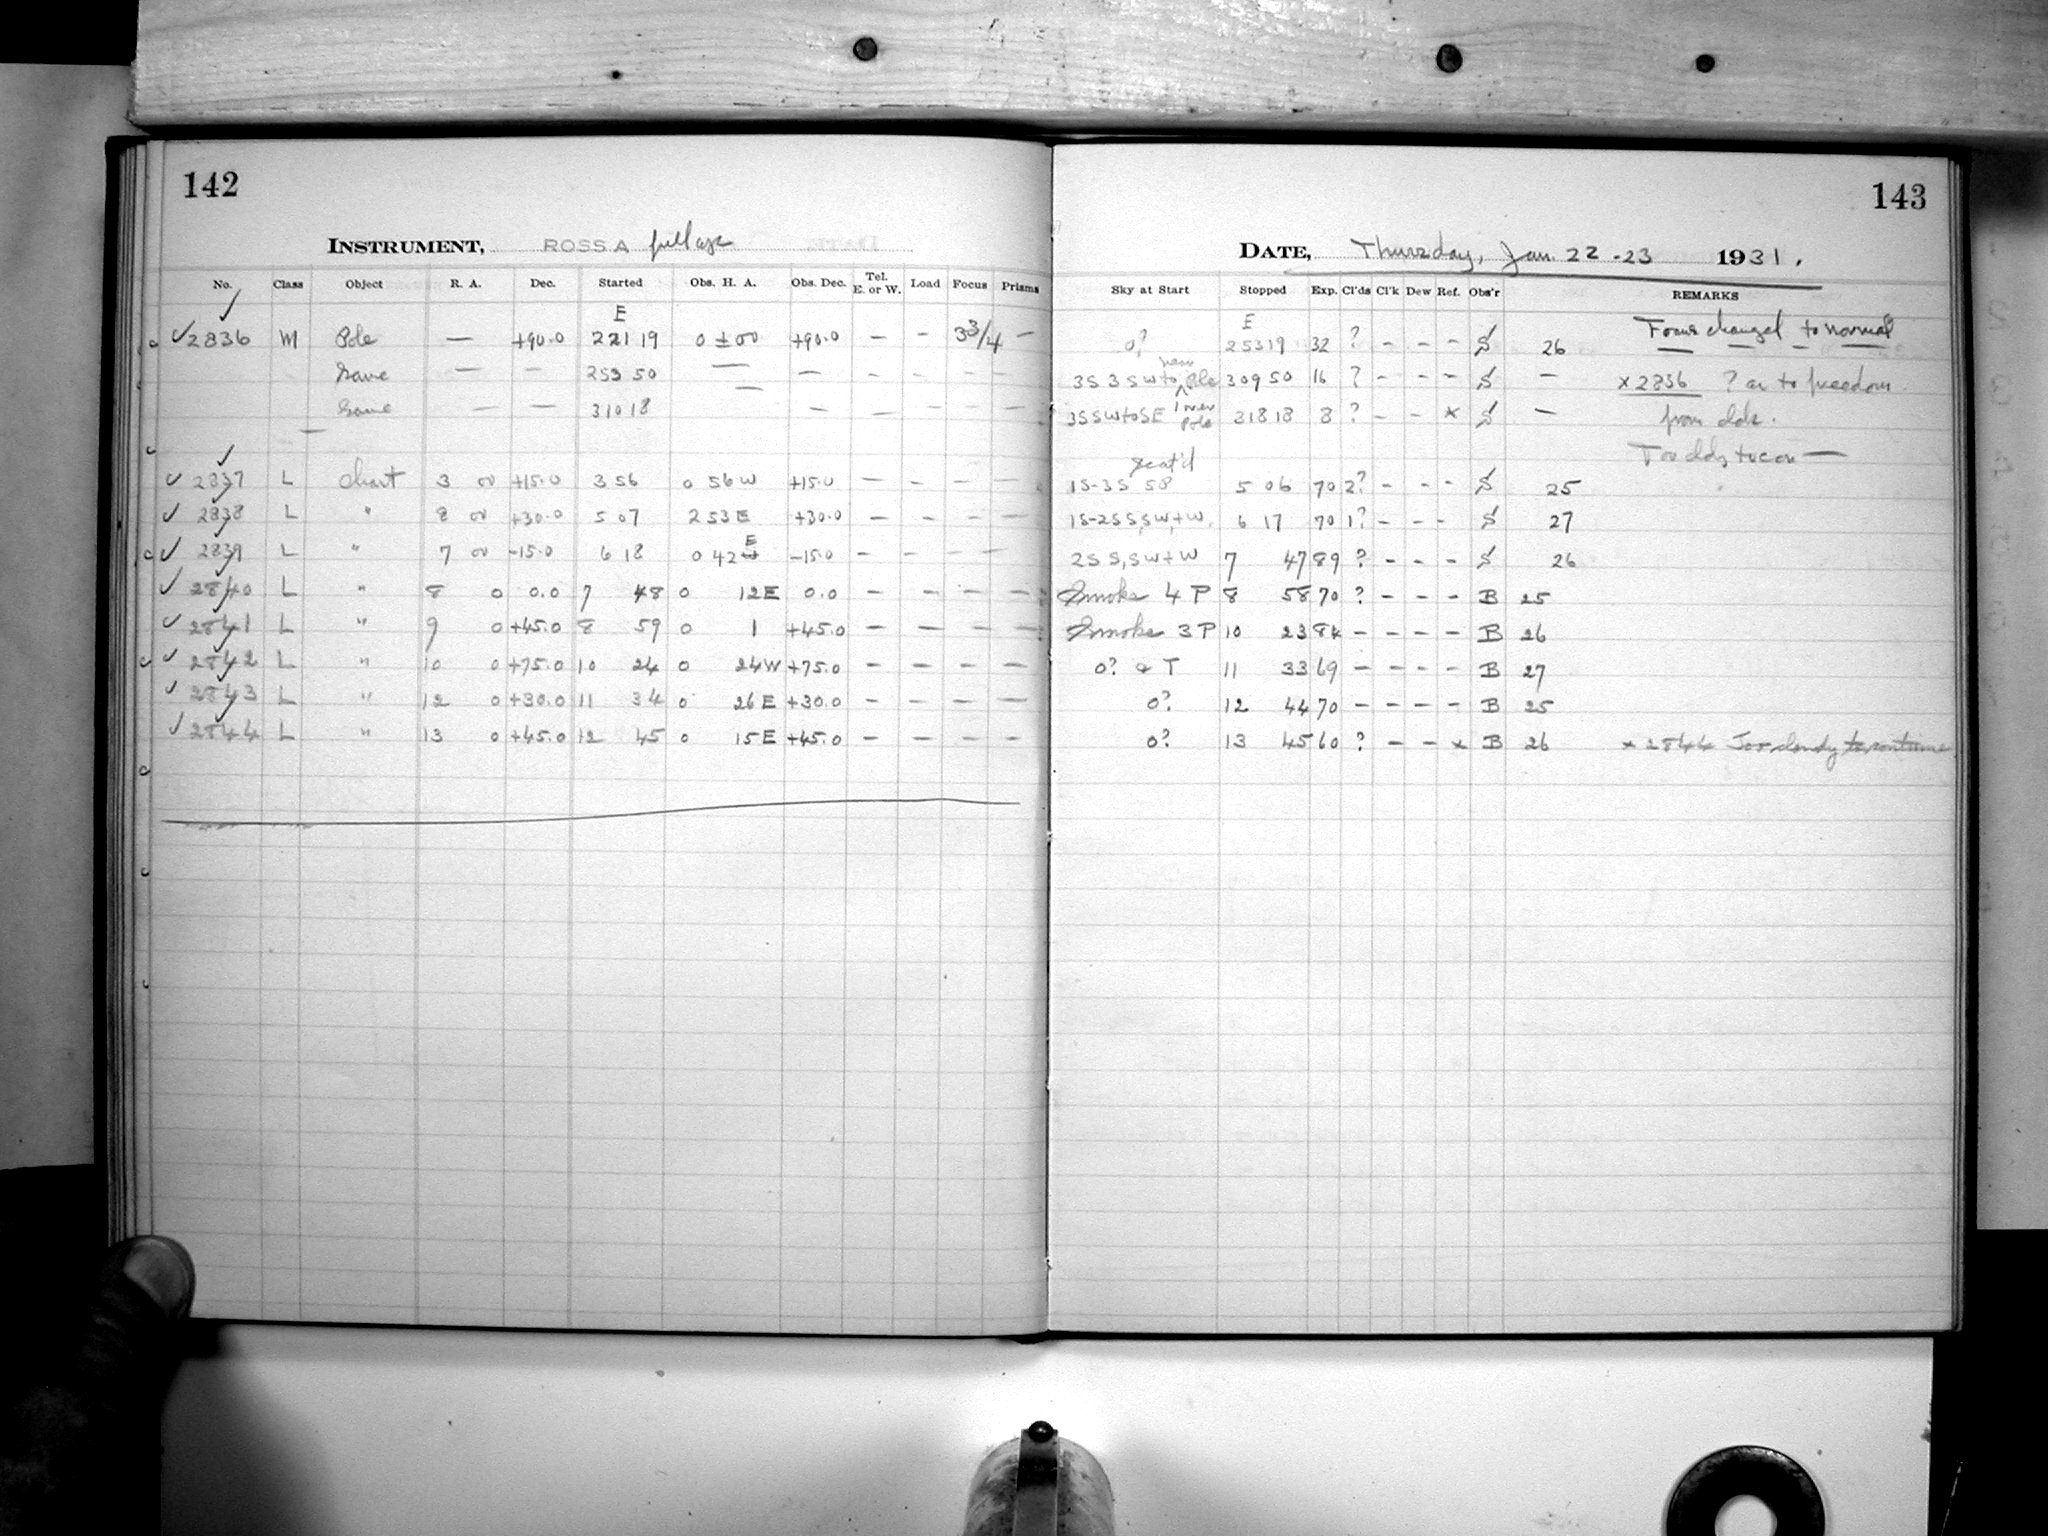 142
INSTRUMENT, ROSS A full age
No. Class Object R. A. Dec. Started Obs. H. A. Obs. Dec. Tel. E. or W. Load Focus Prisms
E
2836 M Pole — +90.0 221 19 0 ± 00 +90.0 — — 3 3/4 —
Same — — 253 50 — — — — — —
Same — — 310 18 — — — — —
2837 L Chart 3 00 +15.0 3 56 0 56 W +15.0 — — — —
2838 L " 8 00 +30.0 5 07 2 53 E +30.0 — — — —
2839 L " 7 00 -15.0 6 18 0 42 E -15.0 — — — —
2840 L " 8 0 0.0 7 48 0 12 E 0.0 — — — —
2841 L " 9 0 +45.0 8 59 0 1 +45.0 — — — —
2842 L " 10 0 +75.0 10 24 0 24 W +75.0 — — — —
2843 L " 12 0 +30.0 11 34 0 26 E +30.0 — — — —
2844 L " 13 0 +45.0 12 45 0 15 E +45.0 — — — —
143
DATE, Thursday, Jan. 22-23 1931.
Sky at Start Stopped Exp. Cl'ds Cl'k Dew Ref. Obs'r REMARKS
E
0? 253 19 32 ? - - - S 26 Focus changed to normal
3S 3 SW to near Pole 309 50 16 ? - - - S — x2836 ? as to freedom
3S SW to SE 1 near Pole 318 18 8 ? - - x S — from clds.
Too cldy to con—
scat'd
1S-3S 58 5 06 70 2? - - - S 25
1S-2S S, SW, + W. 6 17 70 1? - - - S 27
2S S, SW + W 7 47 89 ? - - - S 26
Smoke 4 P 8 58 70 ? - - - B 25
Smoke 3 P 10 23 84 - - - - B 26
0? & T 11 33 69 - - - - B 27
0? 12 44 70 - - - - B 25
0? 13 45 60 ? - - x B 26 x 2844 Too cloudy to continue